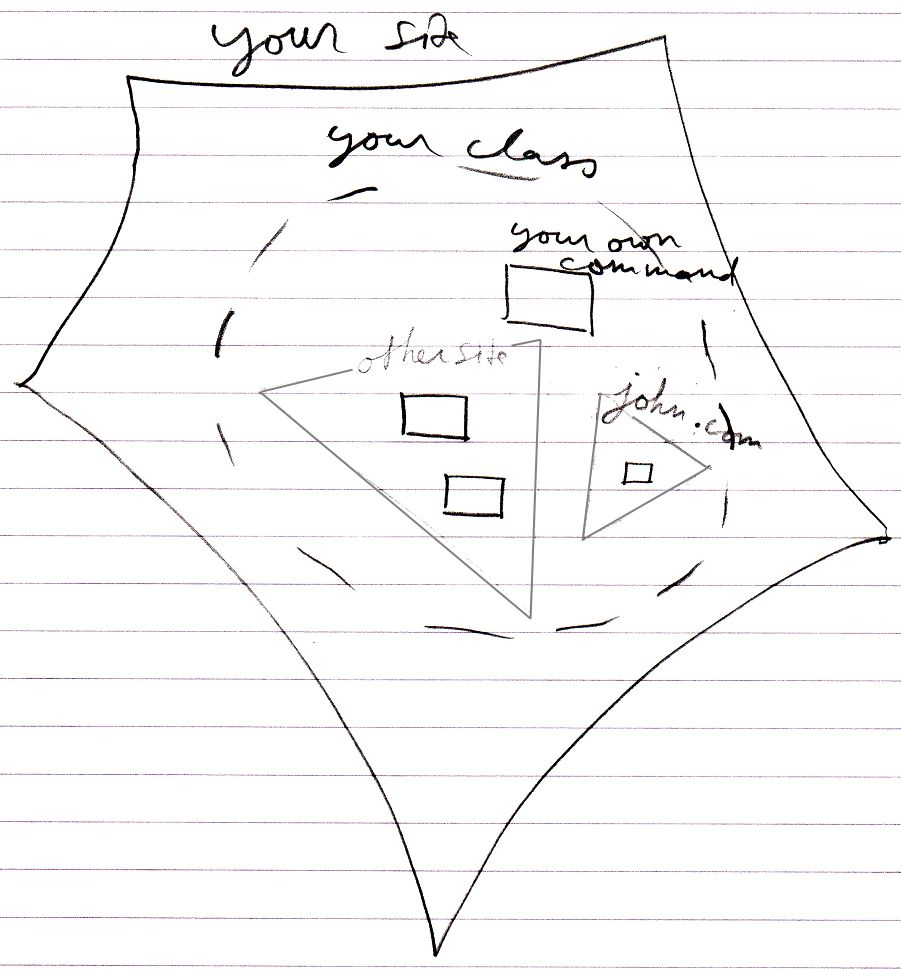 your site
your class
your own
command
other site
john.com